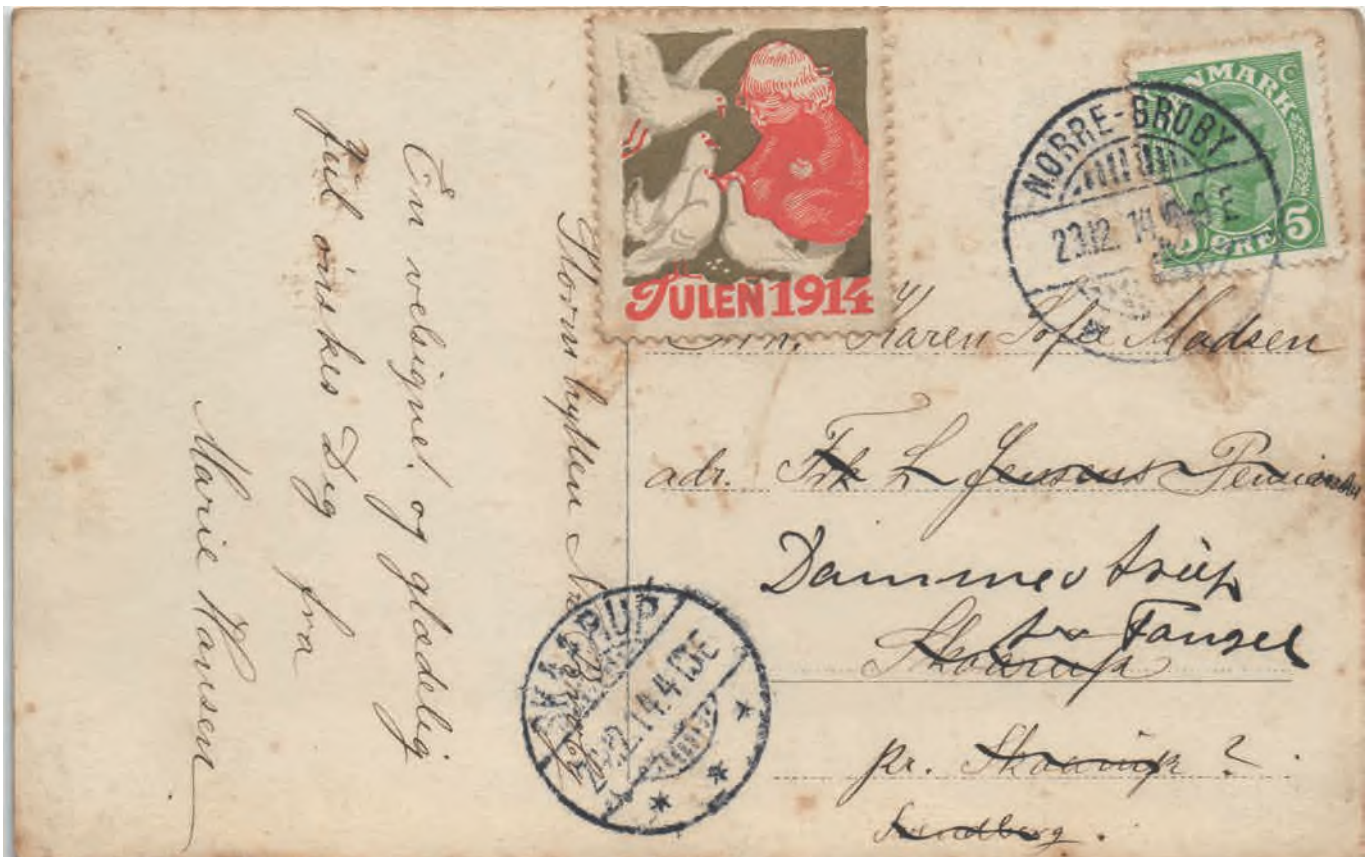 En velsignet og glædelig
Jul önskes Dig fra
Marie Hansen
Stormhytten
JULEN 1914
DANMARK
5 ØRE 5
NØRRE-BROBY
23.12.14
Karen Sofie Madsen
adr. Frk L Jensens
Dammestrup
pr Fangel
Skaarup
pr. Skaarup ?
SKAARUP
.12.14.4